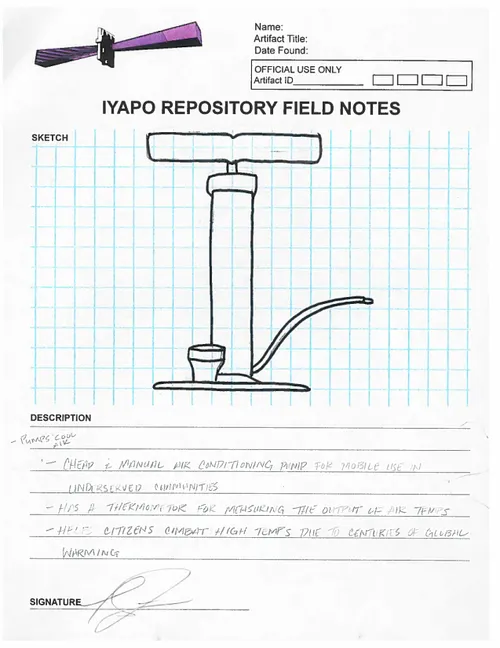 Name:
Artifact Title:
Date Found:
OFFICIAL USE ONLY
Artifact ID
IYAPO REPOSITORY FIELD NOTES
SKETCH
DESCRIPTION
- PUMPS COOL AIR
- CHEAP & MANUAL AIR CONDITIONING PUMP FOR MOBILE USE IN
UNDERSERVED COMMUNITIES
- HAS A THERMOMETOR FOR MEASURING THE OUTPUT OF AIR TEMPS
- HELPS CITIZENS COMBAT HIGH TEMPS DUE TO CENTURIES OF GLOBAL
WARMING
SIGNATURE